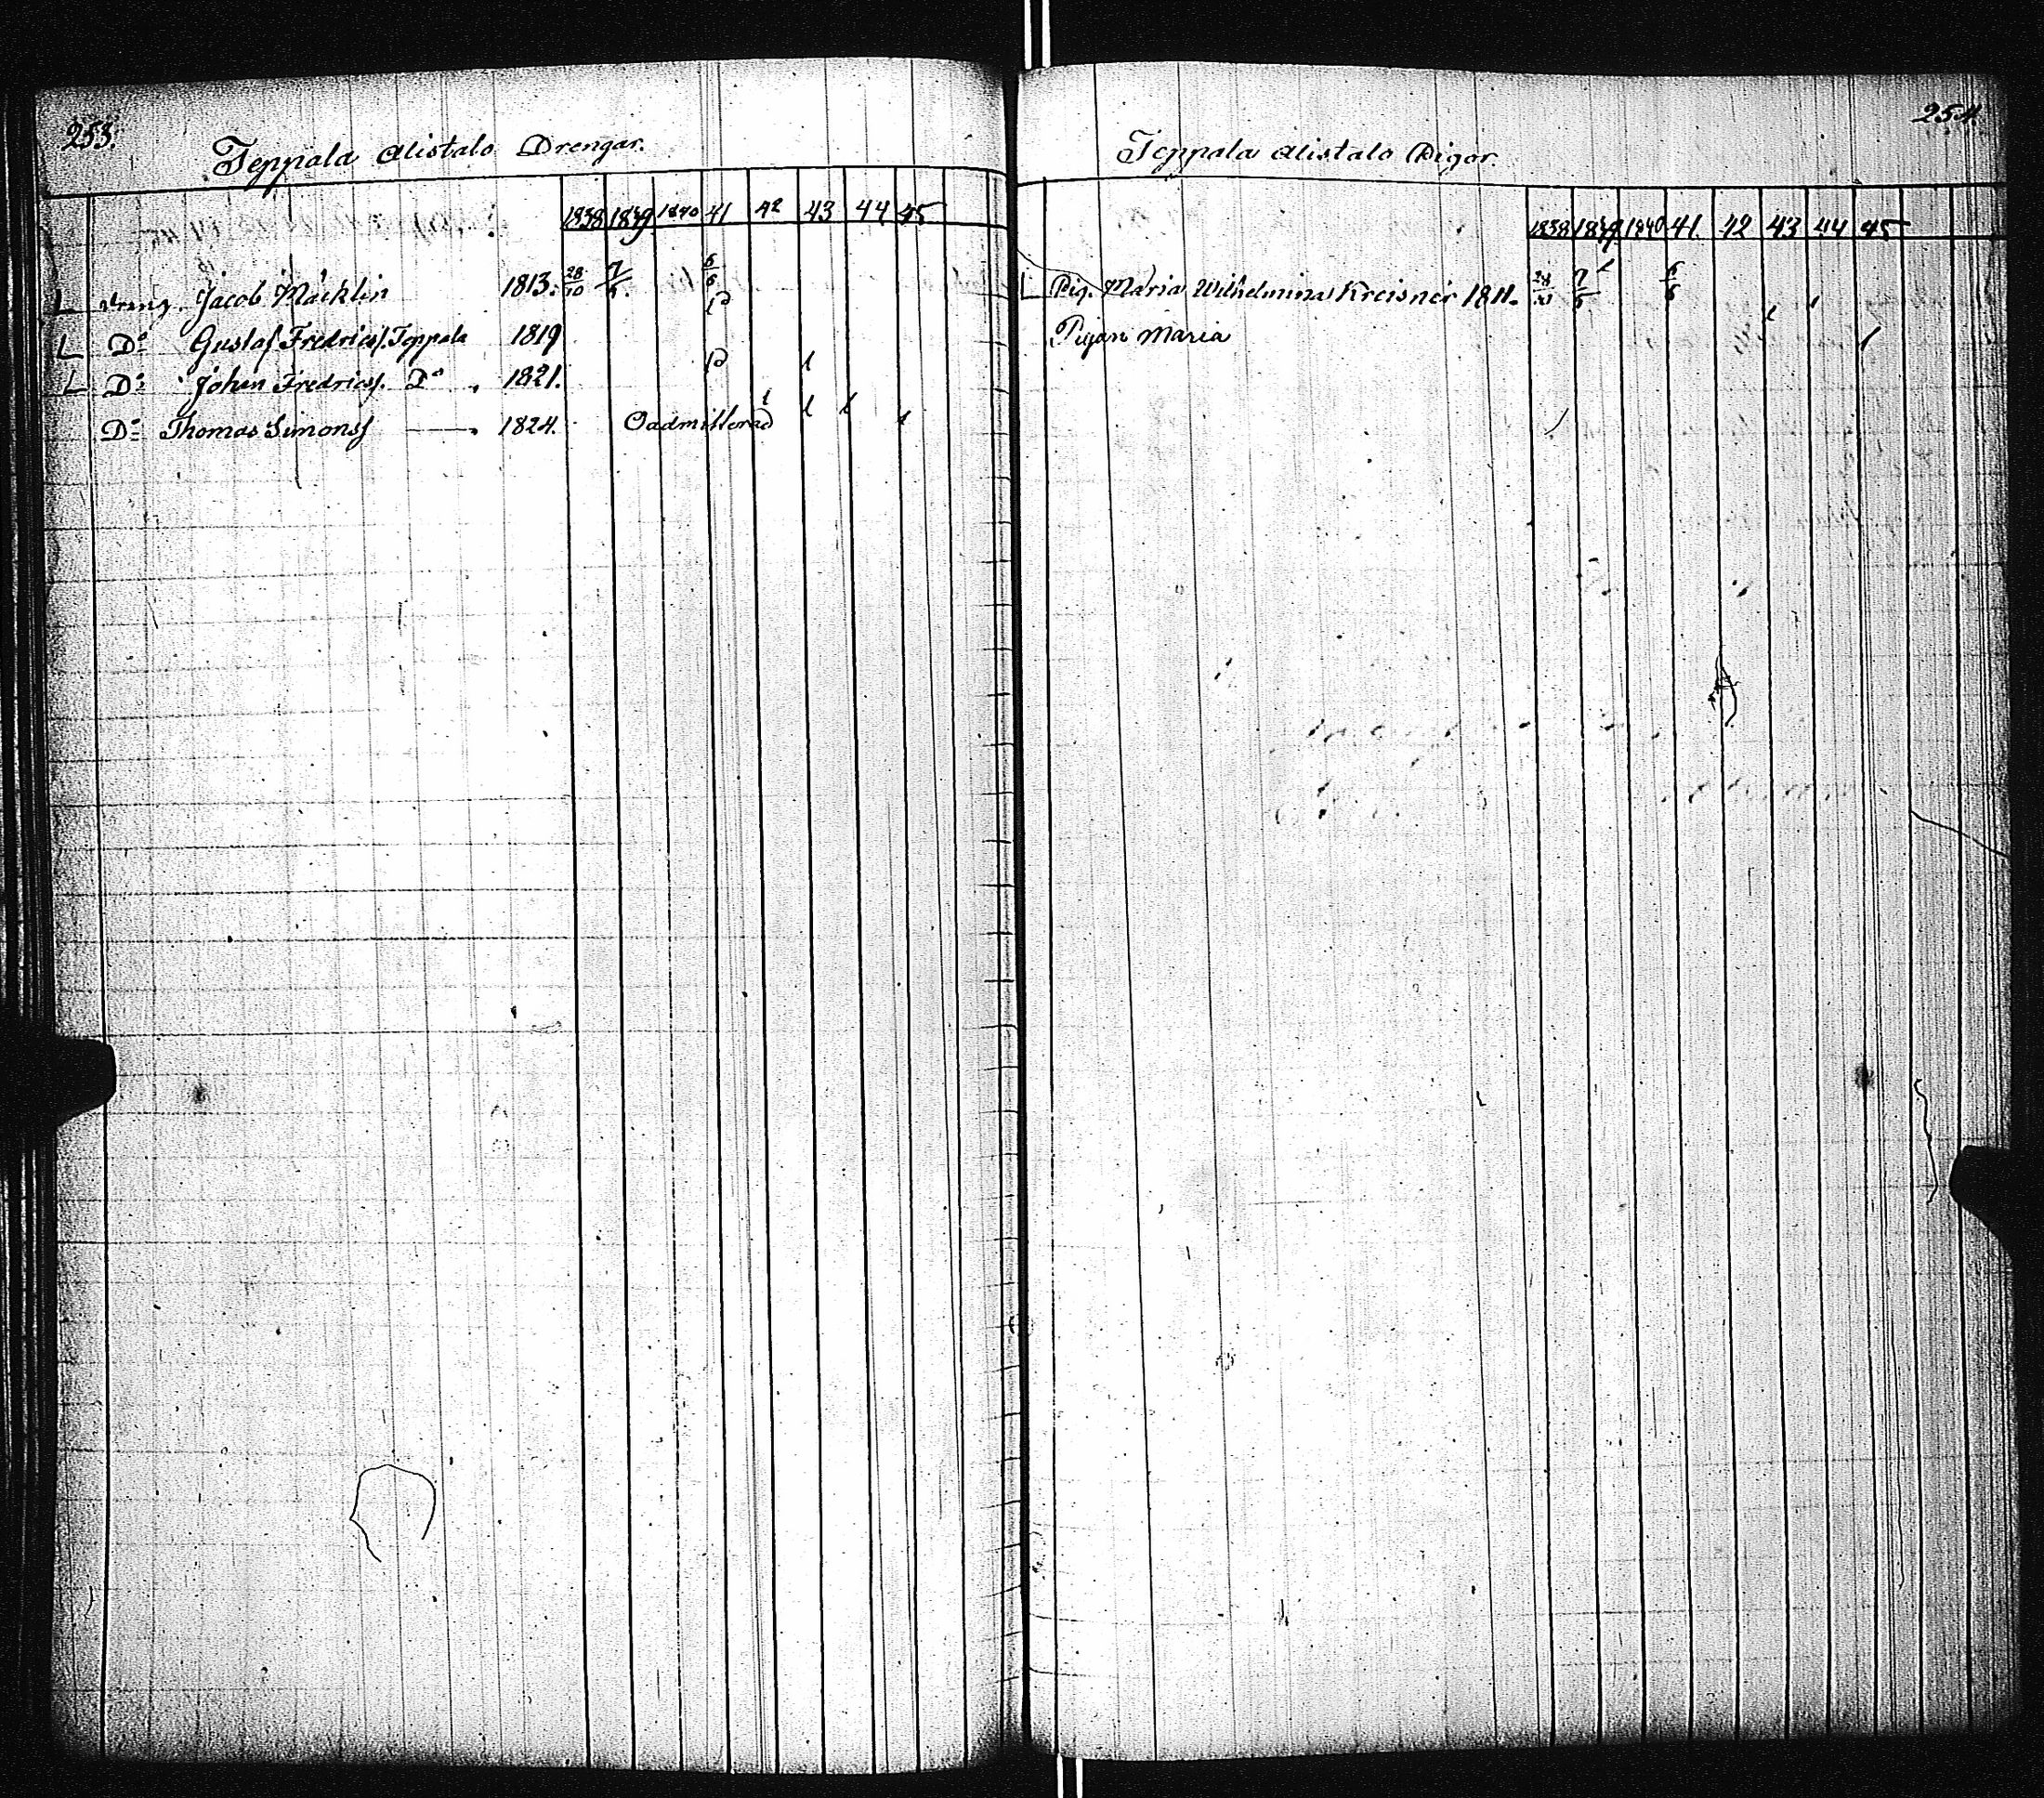 253.
Teppala Alistalo Drengar.
1838 1839 1840 41 42 43 44 45
L Dreng. Jacob Mäcklin 1813. 28/10 7/6 6/6
L Do Gustaf Fredricss. Teppala 1819 P
L Do Johan Fredricss. Do 1821. P l
Do Thomas Simonss 1824. Oadmitterad l l l l
254
Teppala Alistalo Pigor.
1838 1839 1840 41. 42 43 44 45
L Pig. Maria Wilhelmina Kreisner 1811. 28/10 7/6 6/6
Pigan Maria